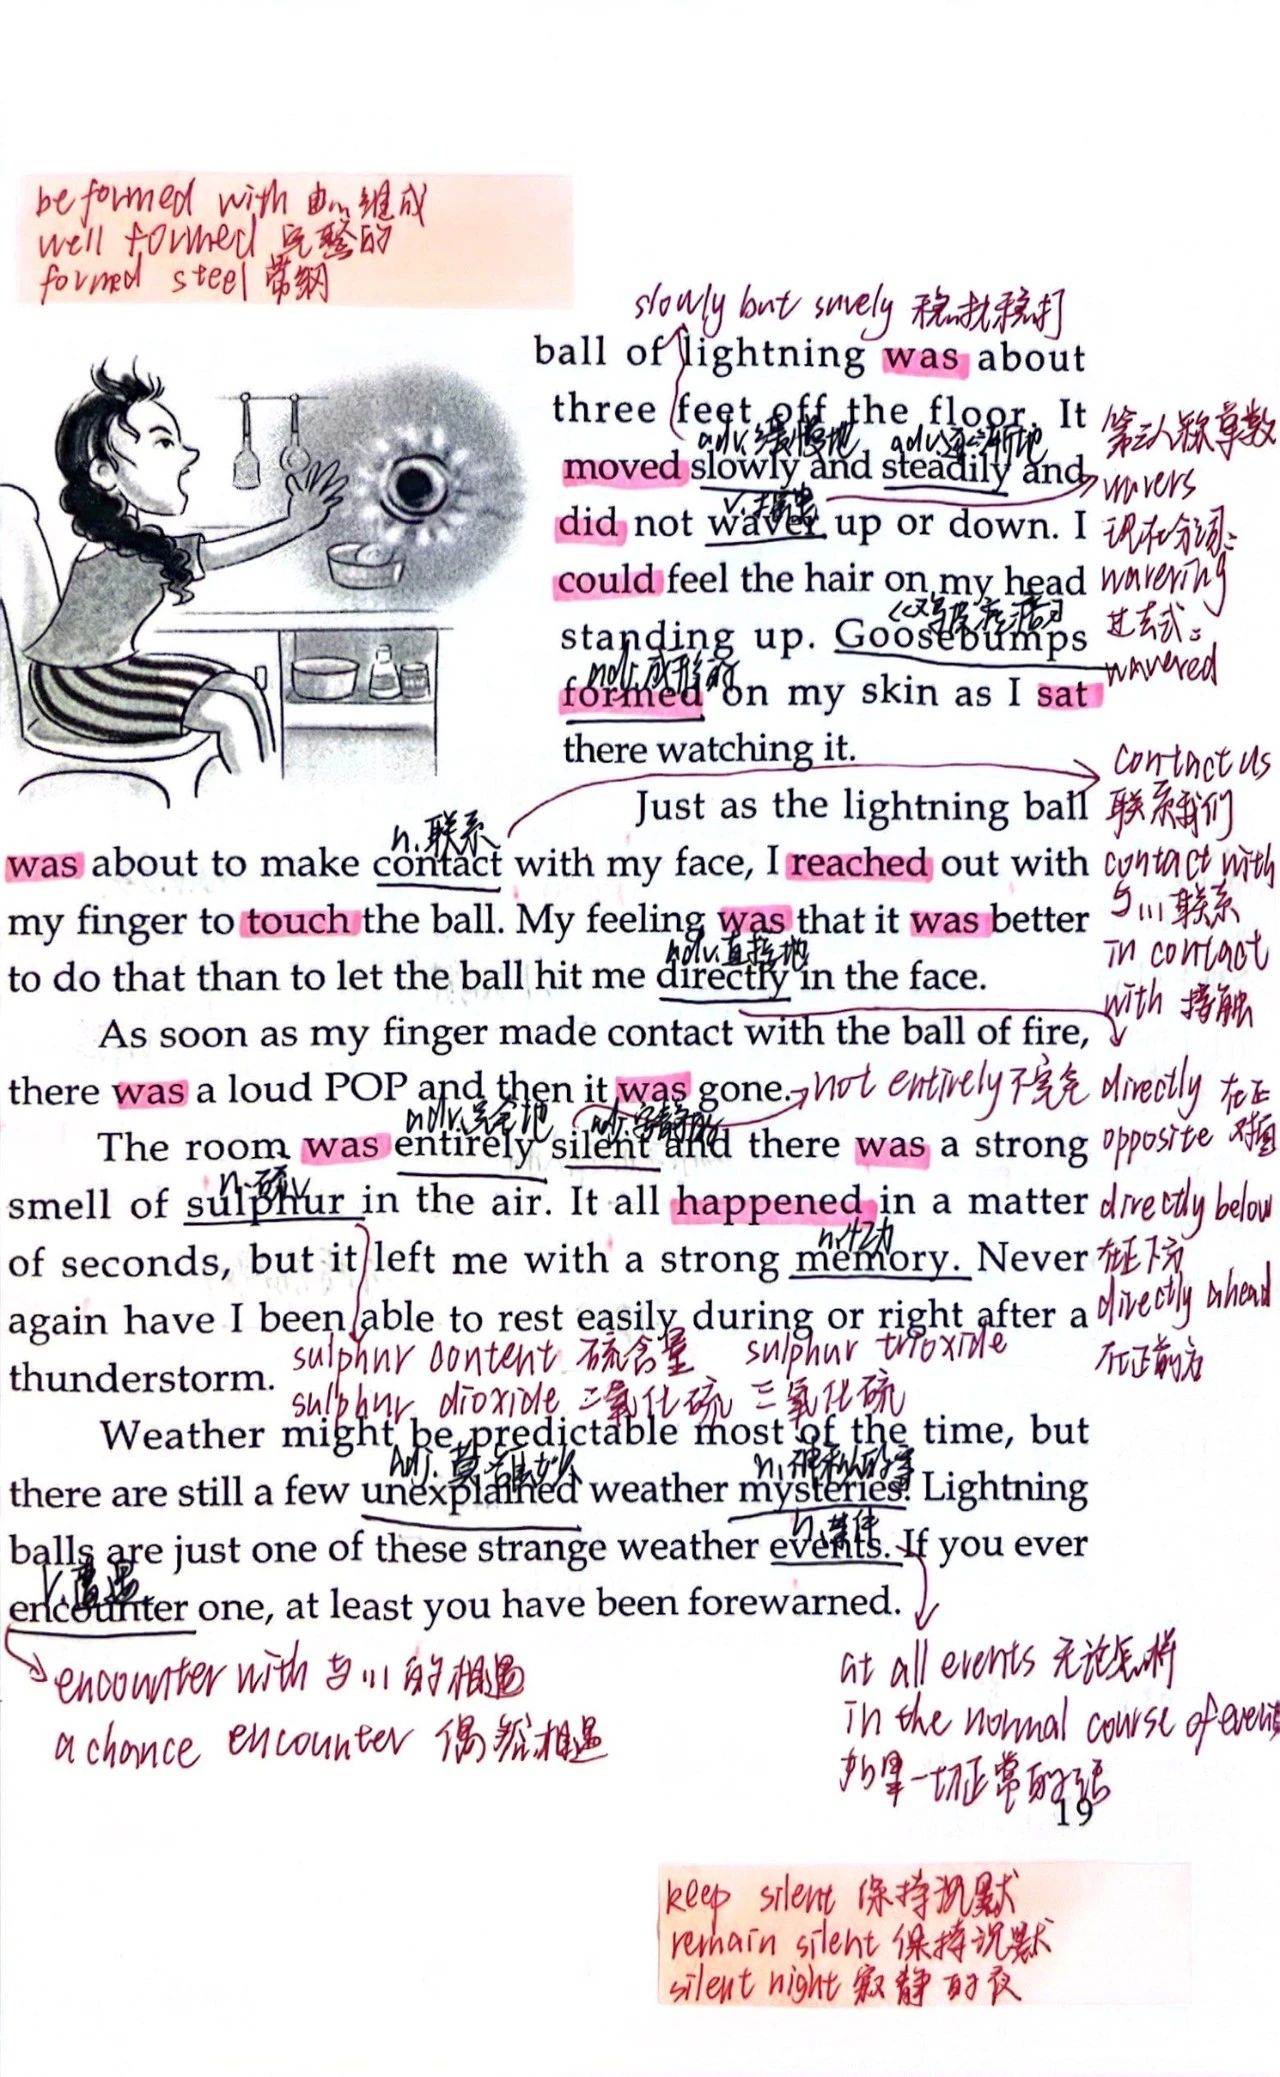 be formed with 由...组成
well formed 完整的
formed steel 带钢
slowly but surely 稳扎稳打
ball of lightning was about
three feet off the floor. It
adv.缓慢地 adv.逐渐地
moved slowly and steadily and
v.摇曳
did not waver up or down. I
could feel the hair on my head
鸡皮疙瘩
standing up. Goosebumps
adj.成形的
formed on my skin as I sat
there watching it.
第三人称单数
wavers
现在分词:
wavering
过去式:
wavered
Just as the lightning ball
n.联系
was about to make contact with my face, I reached out with
my finger to touch the ball. My feeling was that it was better
adv.直接地
to do that than to let the ball hit me directly in the face.
contact us
联系我们
contact with
与...联系
in contact
with 接触
As soon as my finger made contact with the ball of fire,
there was a loud POP and then it was gone.
not entirely 不完全
adv.完全地 adj.安静的
The room was entirely silent and there was a strong
n.硫
smell of sulphur in the air. It all happened in a matter
n.记忆
of seconds, but it left me with a strong memory. Never
again have I been able to rest easily during or right after a
thunderstorm.
directly 在正
opposite 对面
directly below
在正下方
directly ahead
在正前方
sulphur content 硫含量 sulphur trioxide
sulphur dioxide 二氧化硫 三氧化硫
Weather might be predictable most of the time, but
adj.莫名其妙 n.神秘的事
there are still a few unexplained weather mysteries. Lightning
n.事件
balls are just one of these strange weather events. If you ever
v.遭遇
encounter one, at least you have been forewarned.
encounter with 与...的相遇
a chance encounter 偶然相遇
at all events 无论怎样
in the normal course of events
如果一切正常的话
19
keep silent 保持沉默
remain silent 保持沉默
silent night 寂静的夜